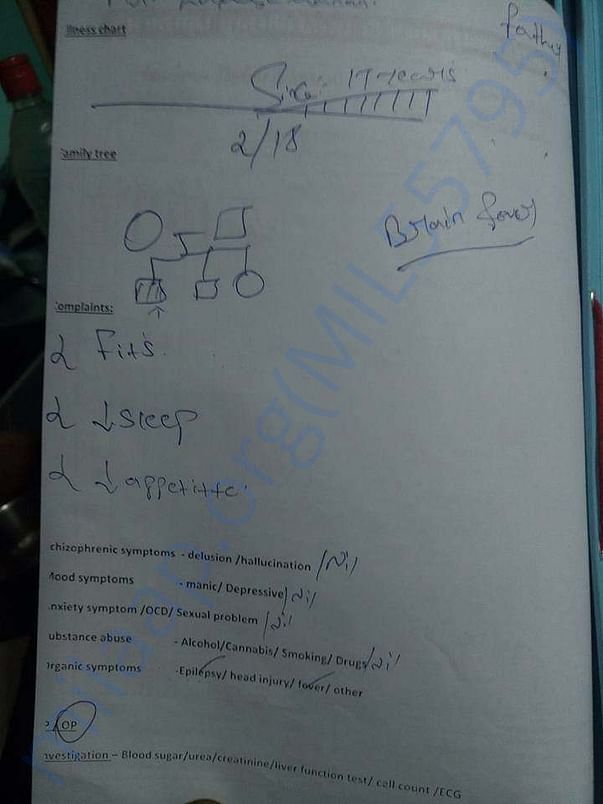 llness chart
Since 17 years
2/18
amily tree
Brain fever
omplaints:
Fits
↓sleep
↓appetitte
chizophrenic symptoms - delusion /hallucination /Nil
Mood symptoms - manic/ Depressive/Nil
nxiety symptom /OCD/ Sexual problem /Nil
ubstance abuse - Alcohol/Cannabis/ Smoking/ Drugs/Nil
rganic symptoms -Epilepsy/ head injury/ fever/ other
OP
nvestigation – Blood sugar/urea/creatinine/liver function test/ cell count /ECG